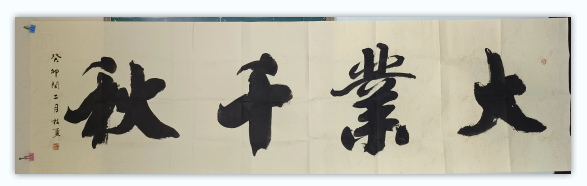 大業千秋
癸卯閏二月